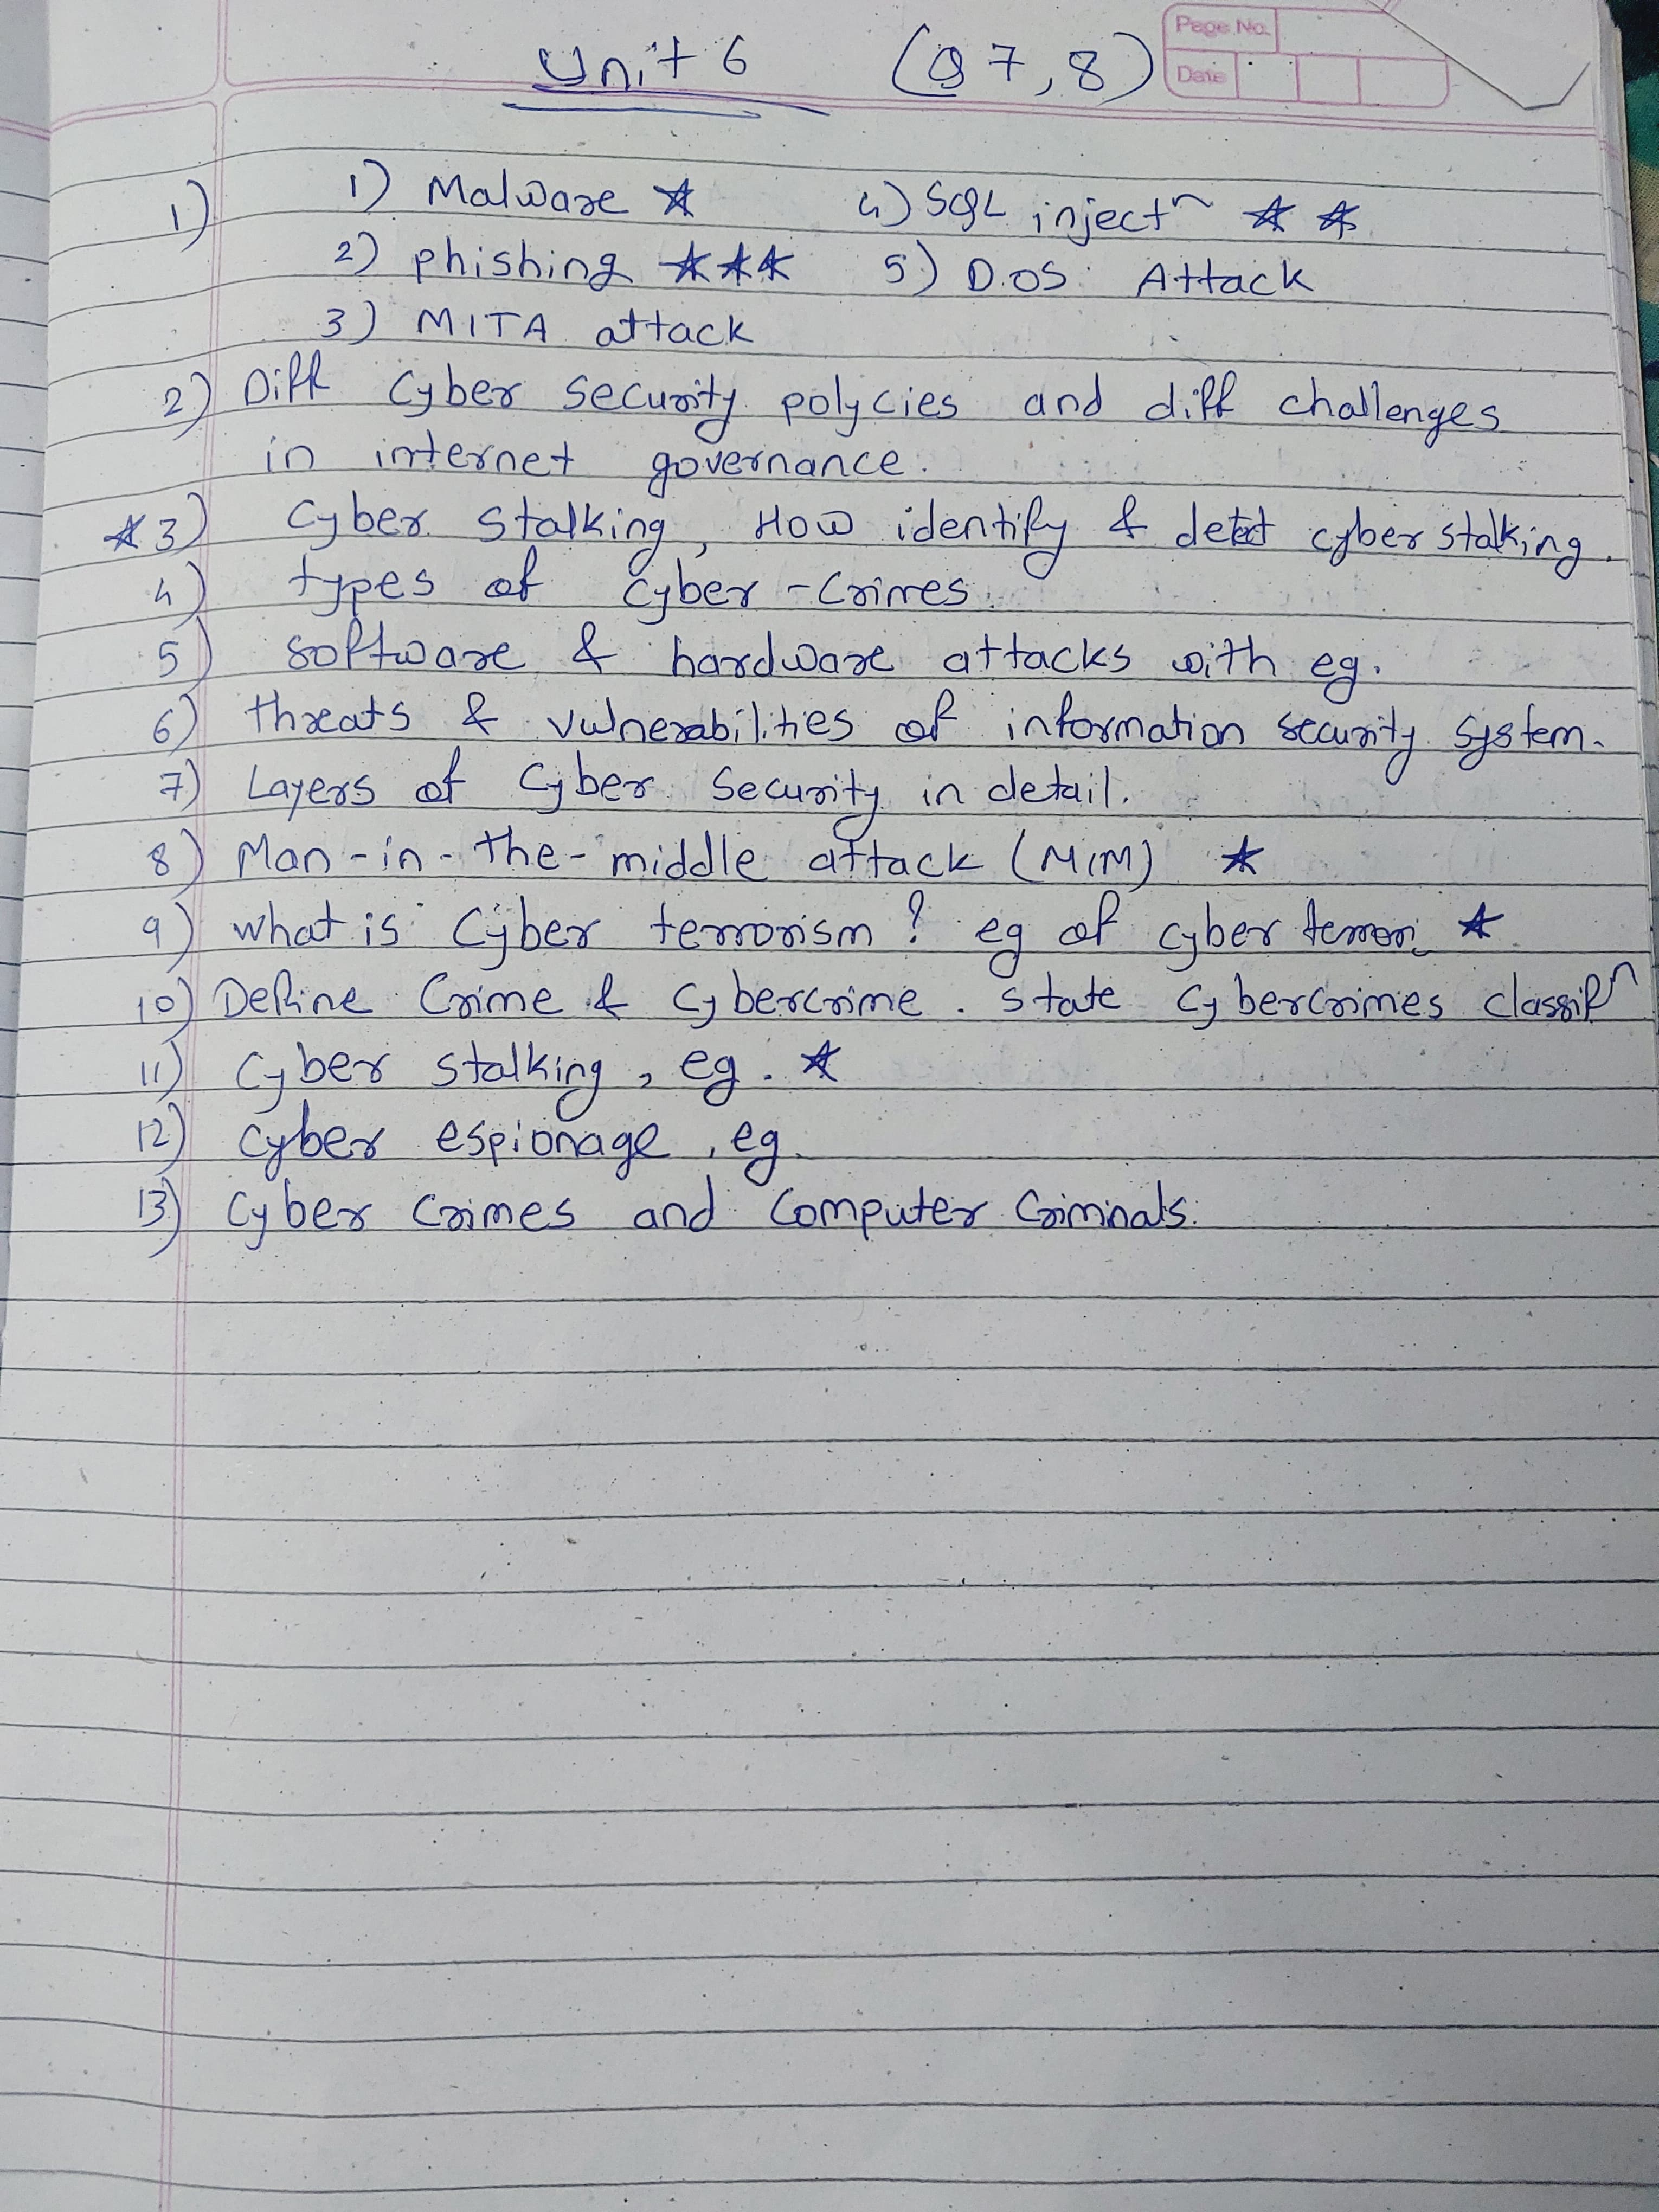 Page No.
Date
Unit 6 (Q 7, 8)
1) 1) Malware ☆ 4) SQL injectⁿ ☆ ☆
2) phishing ☆☆☆ 5) D.OS. Attack
3) MITA attack
2) Diff Cyber Security polycies and diff challenges
in internet governance.
☆3) Cyber Stalking, How identify & detect cyber stalking.
4) types of Cyber-Crimes.
5) software & hardware attacks with eg.
6) threats & vulnerabilities of information security system.
7) Layers of Cyber Security in detail.
8) Man-in-the-middle attack (MIM) ☆
9) what is Cyber terrorism? eg of cyber terrori ☆
10) Define Crime & Cybercrime. State Cybercrimes classifⁿ
11) Cyber stalking, eg. ☆
12) Cyber espionage, eg.
13) Cyber Crimes and Computer Criminals.